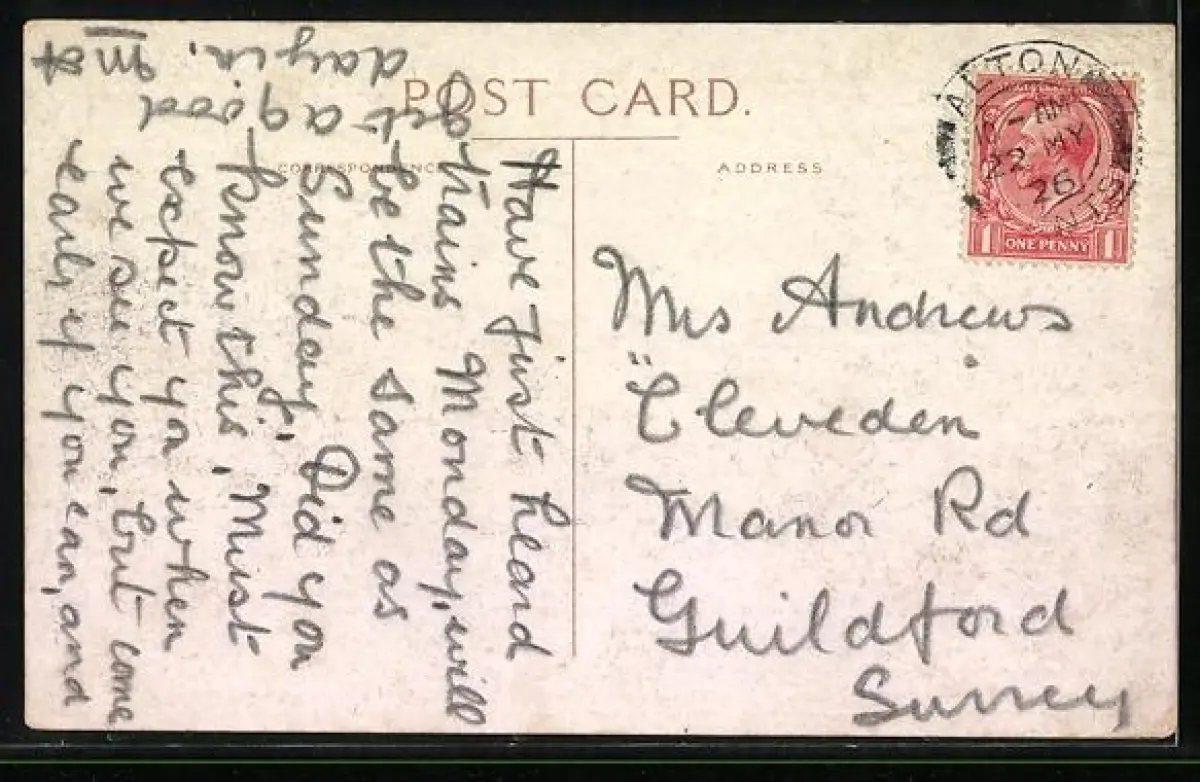 POST CARD.
CORRESPONDENCE
ADDRESS
ALTON
AM
22 MY
26
ANTS
ONE PENNY
1 1
Have Just heard
trains Monday, will
be the same as
Sunday. Did you
know this, Must
expect you when
we see you, but come
early if you can, and
get a good
day in.
Mrs Andrews
"Cleveden
Manor Rd
Guildford
Surrey